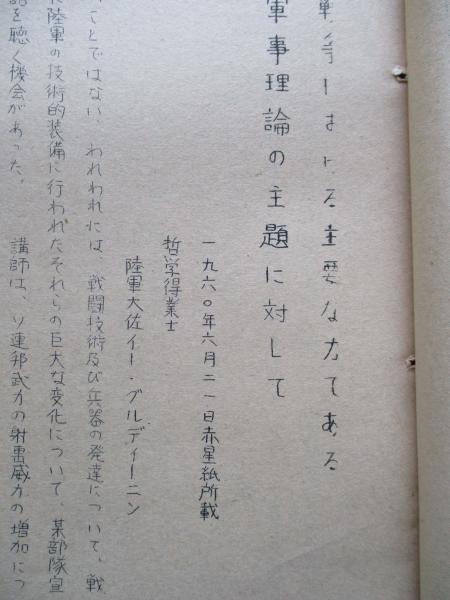 戦争における主要な力である
軍事理論の主題に対して
一九六〇年六月二一日赤星紙所載
哲学得業士
陸軍大佐イー・グルディーニン
ことではない。われわれには、戦闘技術及び兵器の発達について、戦
陸軍の技術的装備に行われたそれらの巨大な変化について、某部隊宣
話を聴く機会があった。 講師は、ソ連邦武力の射撃威力の増加につ